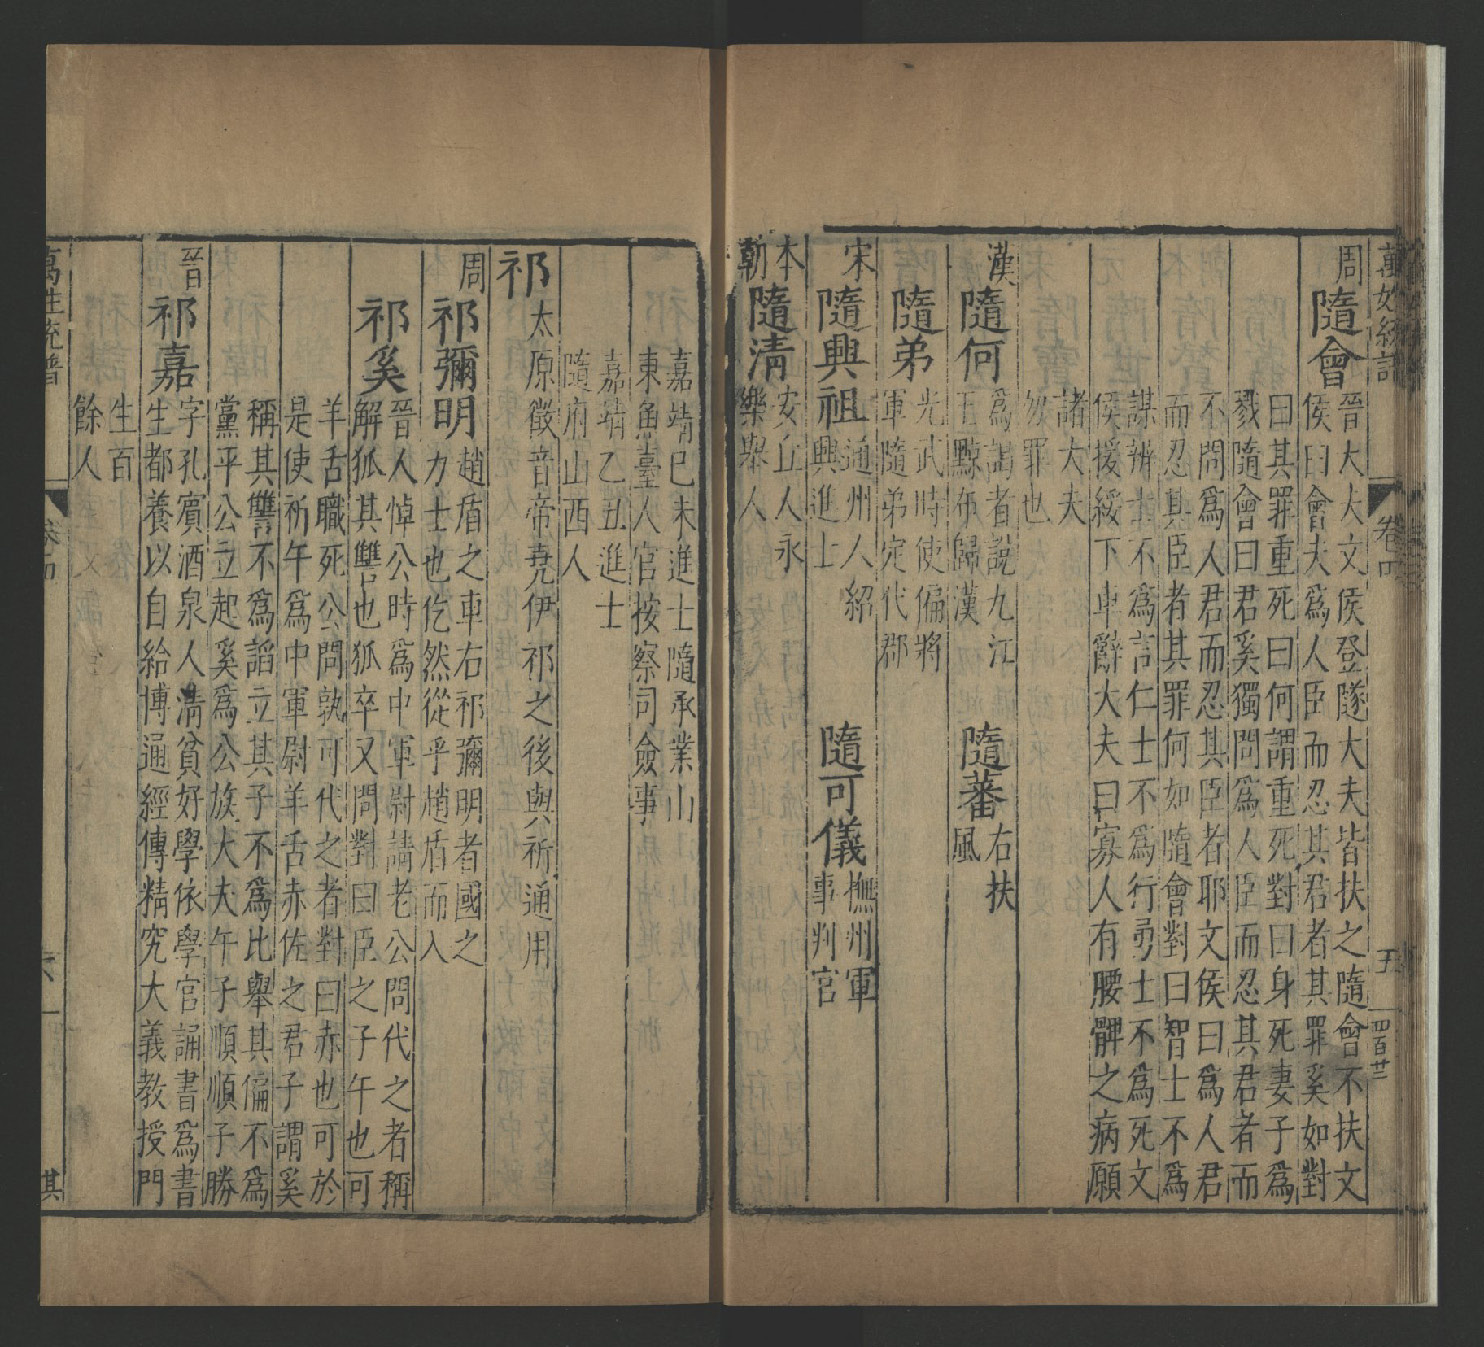 萬姓統譜 卷四 五 四百廿
周 隨會 晉大夫文侯登隧大夫皆扶之隨會不扶文
侯曰會夫爲人臣而忍其君者其罪奚如對
曰其罪重死曰何謂重死對曰身死妻子爲
戮隨會曰君奚獨問爲人臣而忍其君者而
不問爲人君而忍其臣者耶文侯曰爲人君
而忍其臣者其罪何如隨會對曰智士不爲
謀辨士不爲言仁士不爲行勇士不爲死文
侯援綏下車辭大夫曰寡人有腰髀之病願
諸大夫
勿罪也
漢 隨何 爲謁者說九江
王黥布歸漢
隨蕃 右扶
風
隨弟 光武時使偏將
軍隨弟定代郡
宋 隨興祖 通州人紹
興進士
隨可儀 撫州軍
事判官
本朝 隨清 安丘人永
樂舉人
嘉靖己未進士隨承業山
東魚臺人官按察司僉事
嘉靖乙丑進士
隨府山西人
祁 太原徵音帝堯伊祁之後與祈通用
周 祁彌明 趙盾之車右祁彌明者國之
力士也仡然從乎趙盾而入
祁奚 晉人悼公時爲中軍尉請老公問代之者稱
解狐其讐也狐卒又問對曰臣之子午也可
羊舌職死公問孰可代之者對曰赤也可於
是使祈午爲中軍尉羊舌赤佐之君子謂奚
稱其讐不爲謟立其子不爲比舉其偏不爲
黨平公立起奚爲公族大夫午子順順子勝
晉 祁嘉 字孔賓酒泉人清貧好學依學官誦書爲書
生都養以自給博通經傳精究大義教授門
生百
餘人
萬姓統譜 卷四 六 其